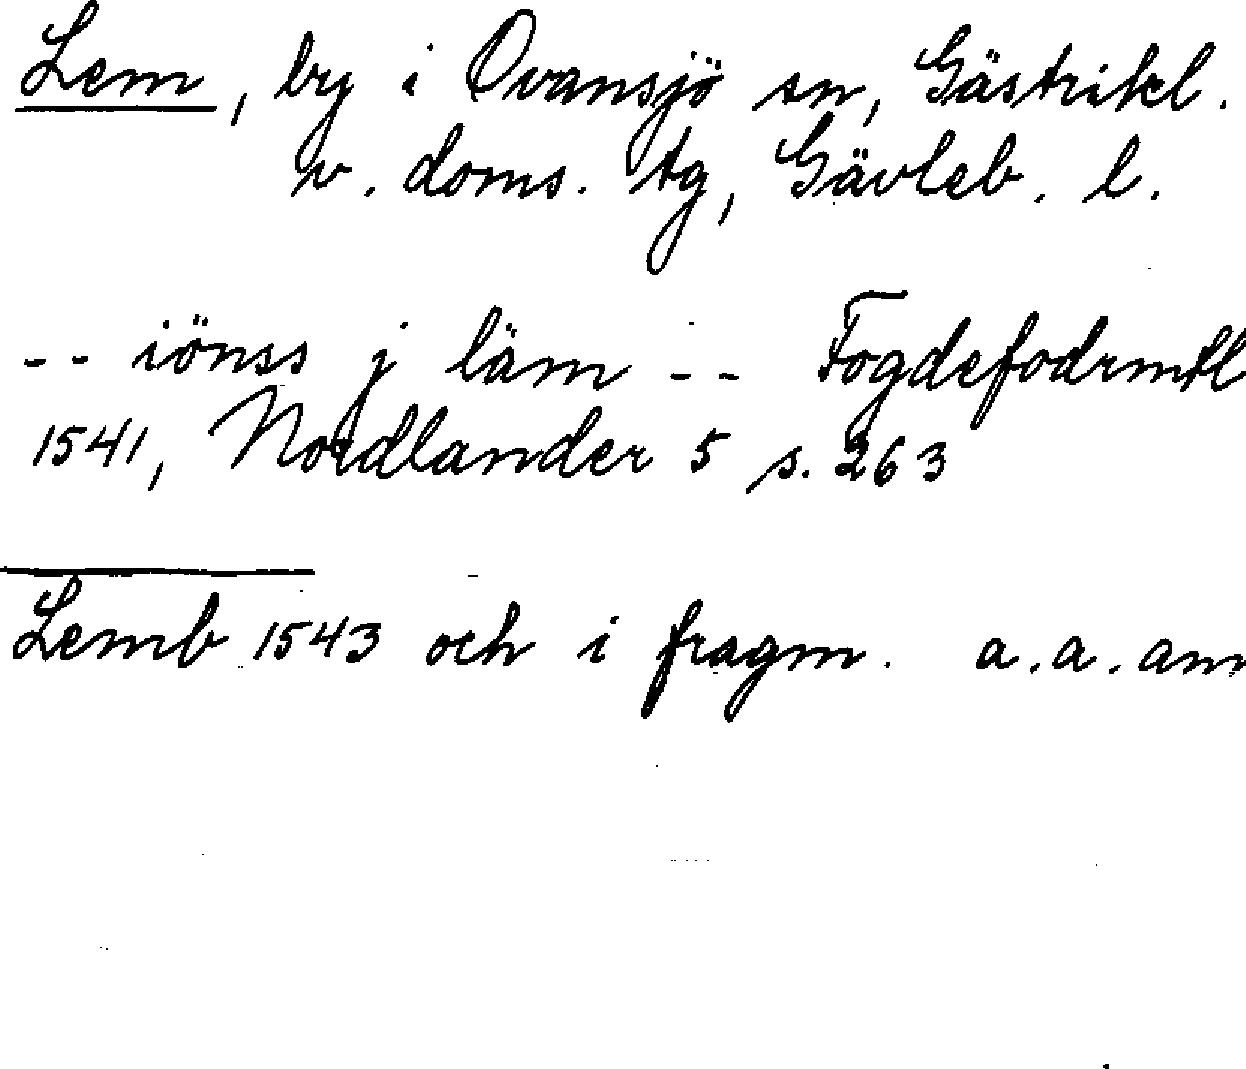 Lem, by i Ovansjö sn, Gästrikl.
v. doms. tg, Gävleb. l.
-- iönss j läm -- Fogdefodrmtl
1541, Nordlander 5 s. 263
Lemb 1543 och i fragm. a.a. anm